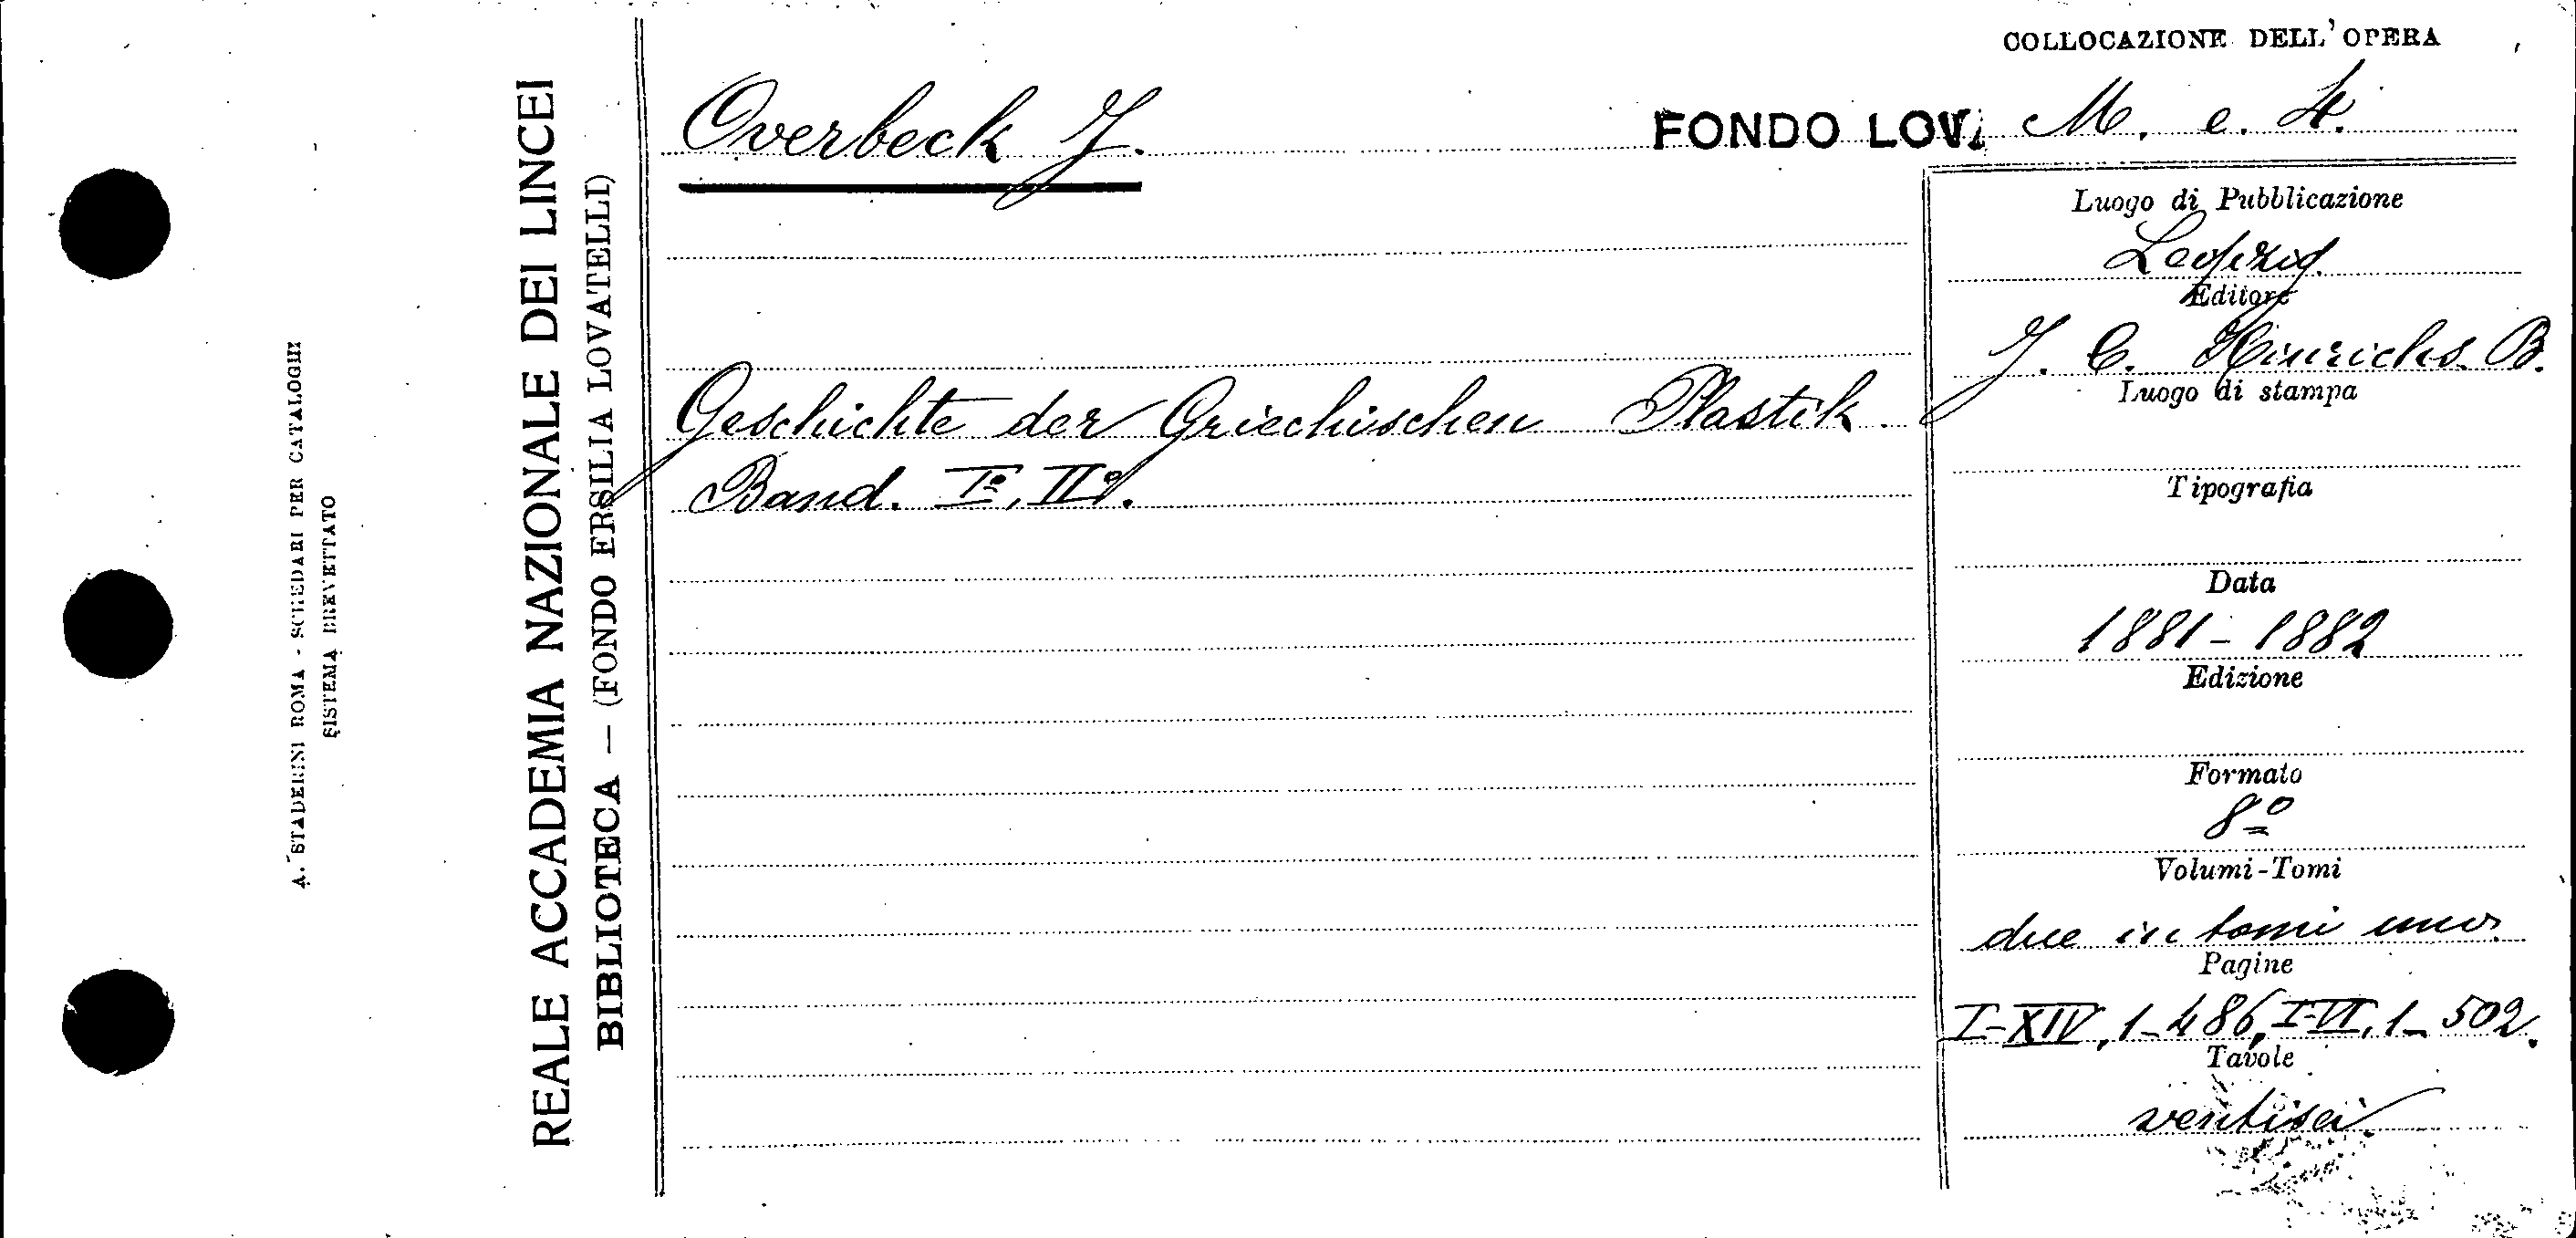 A. STADERINI ROMA - SCHEDARI PER CATALOGHI
SISTEMA BREVETTATO
REALE ACCADEMIA NAZIONALE DEI LINCEI
BIBLIOTECA — (FONDO ERSILIA LOVATELLI)
COLLOCAZIONE DELL'OPERA
Overbeck J. FONDO LOV. M. e. 4.
Geschichte der Griechischen Plastik
Band. Iº, IIº.
Luogo di Pubblicazione
Leipzig.
Editore
J. C. Hinrichs. B.
Luogo di stampa
Tipografia
Data
1881 - 1882
Edizione
Formato
8º
Volumi-Tomi
due in tomi uno.
Pagine
I-XIV, 1-486, I-VI, 1-502.
Tavole
ventisei